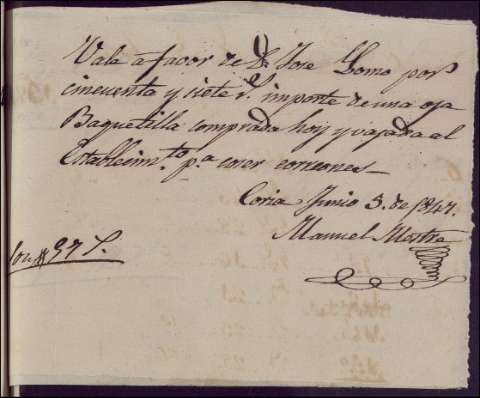 Vale a favor de Dn. Jose Lomo por
cincuenta y siete rs. importe de una oja
Baquetilla comprada hoy y vajada al
Establecimto. pa. coser correones
Coria Junio 5. de 1847.
Manuel Mestre
57 rs.